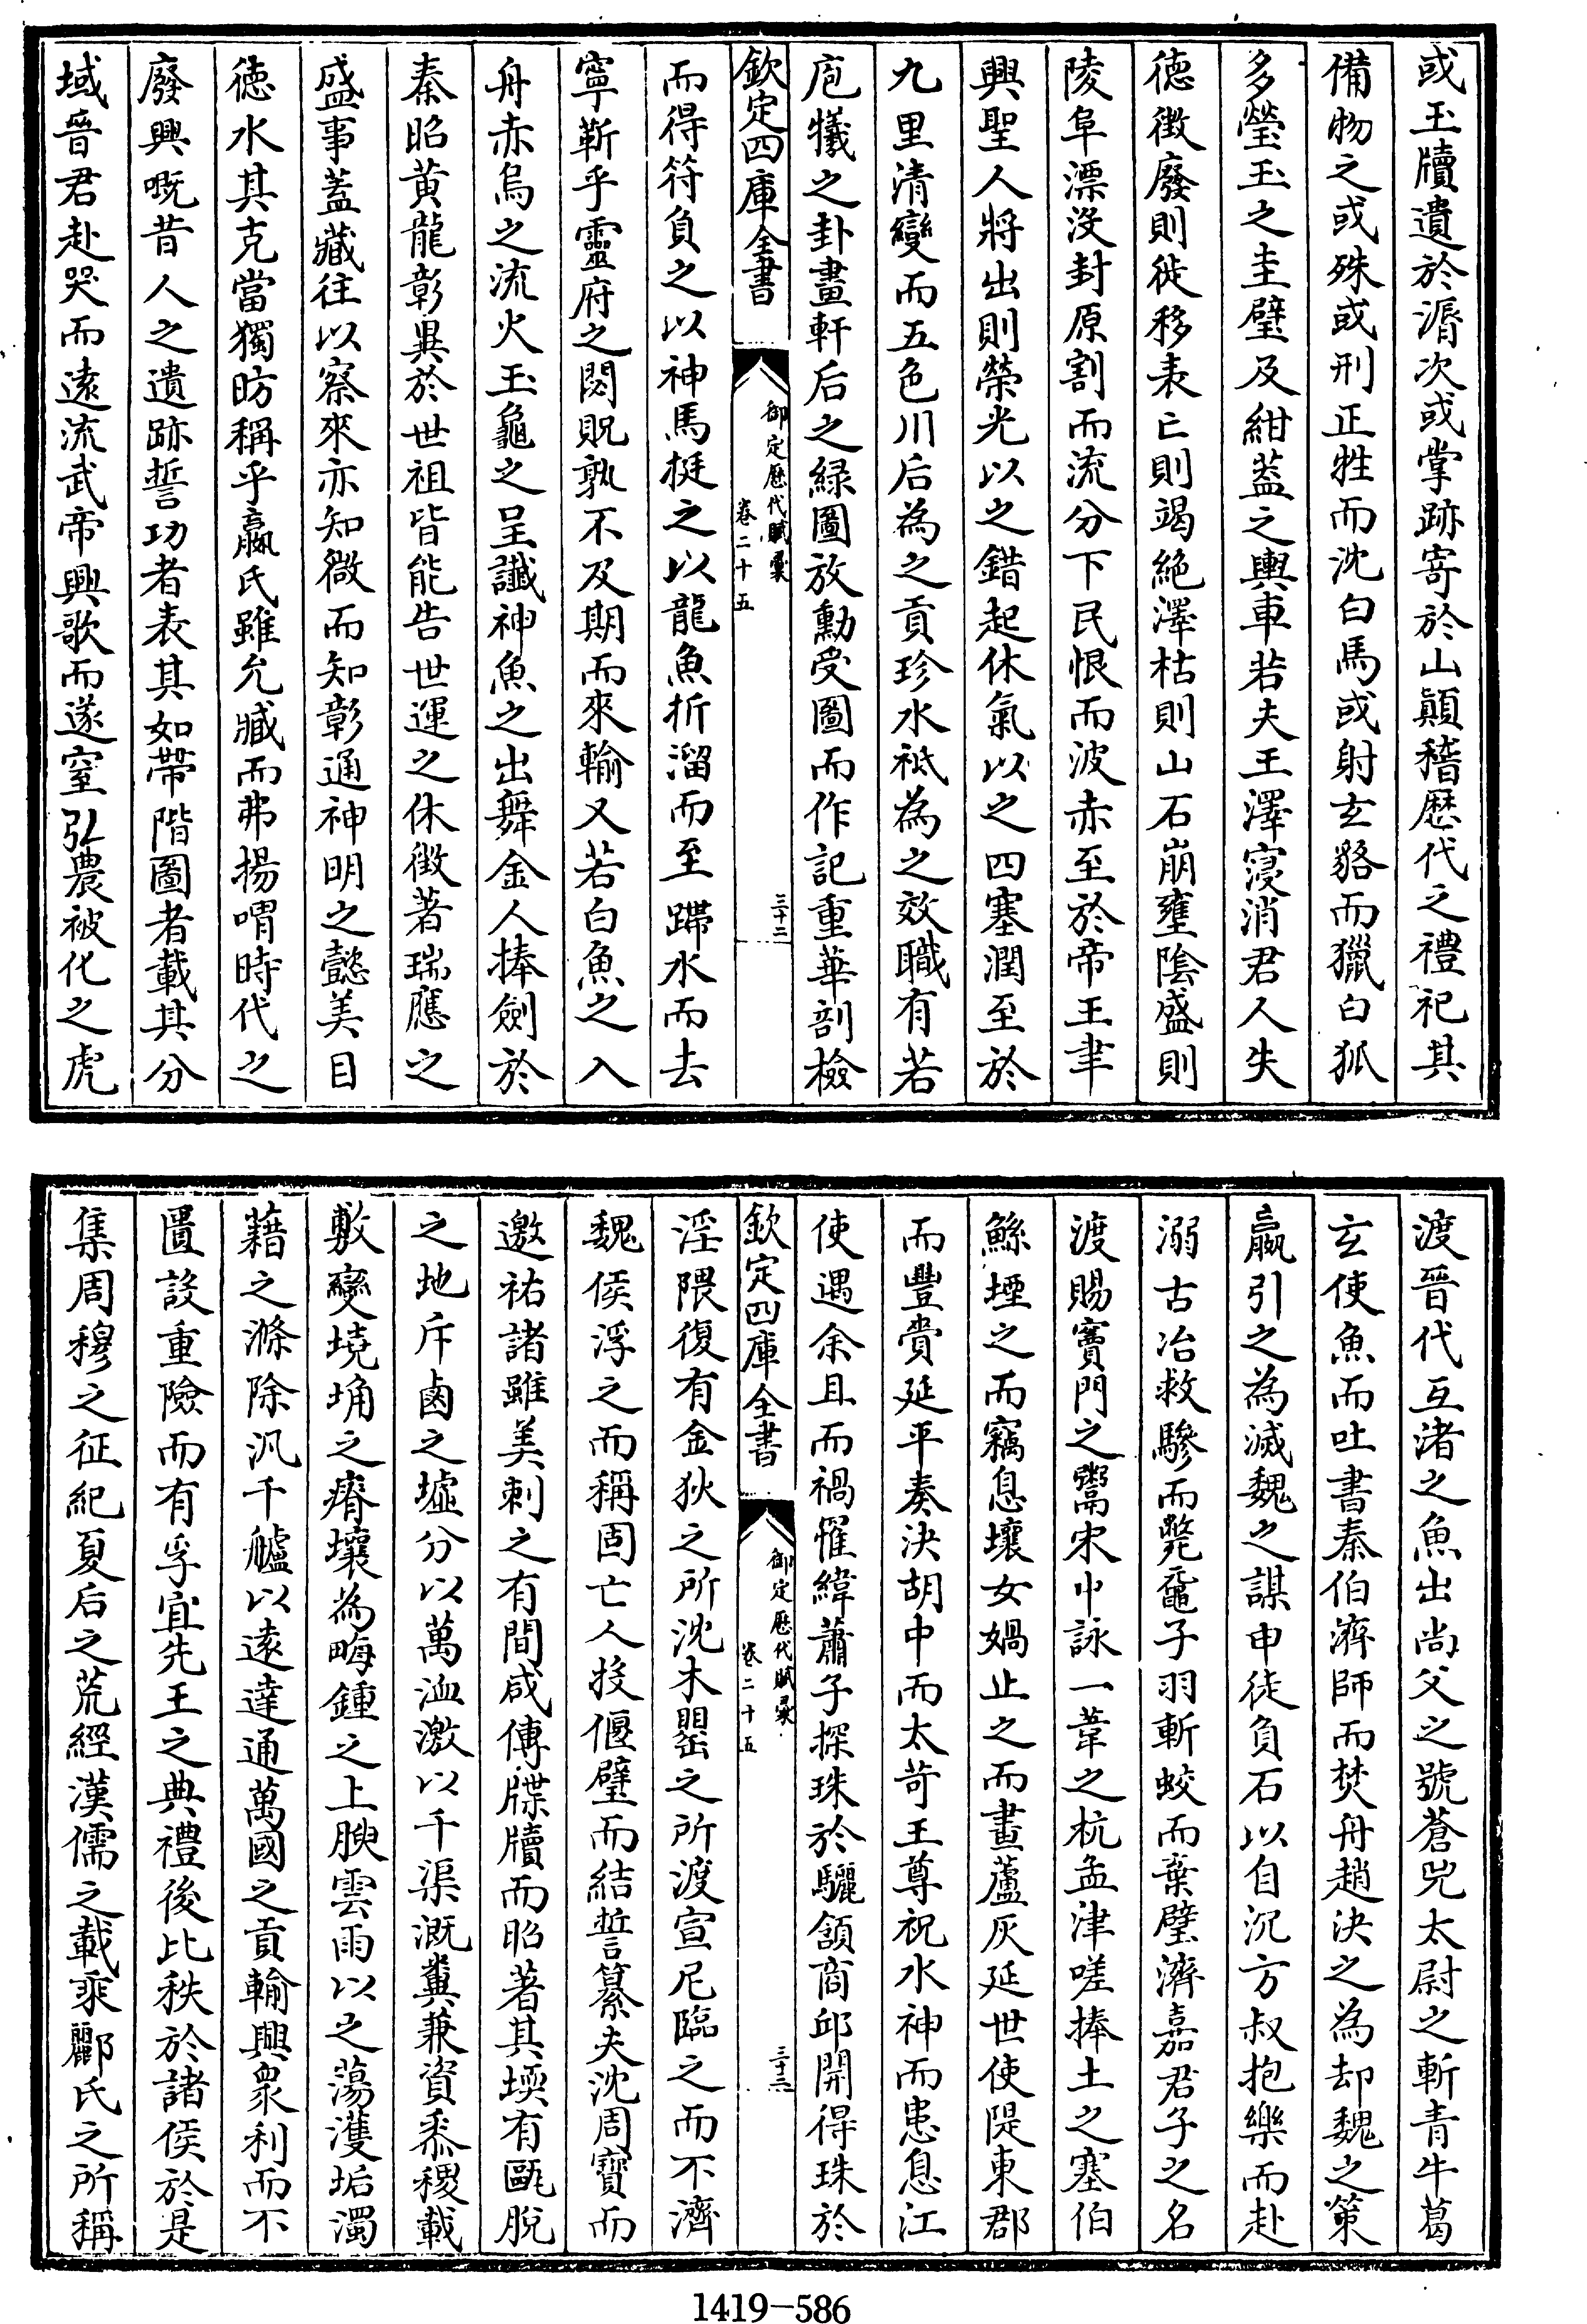 或玉牘遺於漘次或掌跡寄於山顛稽歴代之禮祀其
備物之或殊或刑正牲而沈白馬或射玄貉而獵白狐
多瑩玉之圭璧及紺蓋之輿車若夫王澤寖消君人失
德徴廢則徙移表亡則竭絶澤枯則山石崩壅隂盛則
陵阜漂沒封原割而流分下民恨而波赤至於帝王聿
興聖人將出則榮光以之錯起休氣以之四塞潤至於
九里清變而五色川后為之貢珍水祗為之效職有若
庖犧之卦畫軒后之緑圖放勳受圖而作記重華剖檢
欽定四庫全書
御定歴代賦彙
卷二十五
三十二
而得符負之以神馬挺之以龍魚折溜而至蹛水而去
寧靳乎靈府之閟貺孰不及期而來輸又若白魚之入
舟赤烏之流火玉龜之呈讖神魚之出舞金人捧劍於
秦昭黄龍彰異於世祖皆能告世運之休徴著瑞應之
盛事蓋藏往以察來亦知微而知彰通神明之懿美目
德水其克當獨昉稱乎嬴氏雖允臧而弗揚喟時代之
廢興嘅昔人之遺跡誓功者表其如帶階圖者載其分
域晉君赴哭而逺流武帝興歌而遂窒弘農被化之虎
渡晉代互渚之魚出尚父之號蒼兕太尉之斬青牛葛
玄使魚而吐書秦伯濟師而焚舟趙決之為却魏之策
嬴引之為滅魏之謀申徒負石以自沉方叔抱樂而赴
溺古冶救驂而斃黿子羽斬蛟而棄璧濟嘉君子之名
渡賜竇門之鬻宋中詠一葦之杭孟津嗟捧土之塞伯
鯀堙之而竊息壤女媧止之而畫蘆灰延世使隄東郡
而豐賞延平奏決胡中而太苛王尊祝水神而患息江
使遇余且而禍罹緯蕭子探珠於驪頷商邱開得珠於
欽定四庫全書
御定歴代賦彙
卷二十五
三十三
淫隈復有金狄之所沈木罌之所渡宣尼臨之而不濟
魏侯浮之而稱固亡人投偃璧而結誓纂夫沈周寶而
邀祐諸雖美刺之有間咸傳牒牘而昭著其堧有甌脫
之地斥鹵之墟分以萬洫激以千渠溉糞兼資黍稷載
敷變墝埆之瘠壤為畮鍾之上腴雲雨以之蕩濩垢濁
藉之滌除汎千艫以逺達通萬國之貢輸興衆利而不
匱設重險而有孚宜先王之典禮後比秩於諸侯於是
集周穆之征紀夏后之荒經漢儒之載乘酈氏之所稱
1419—586